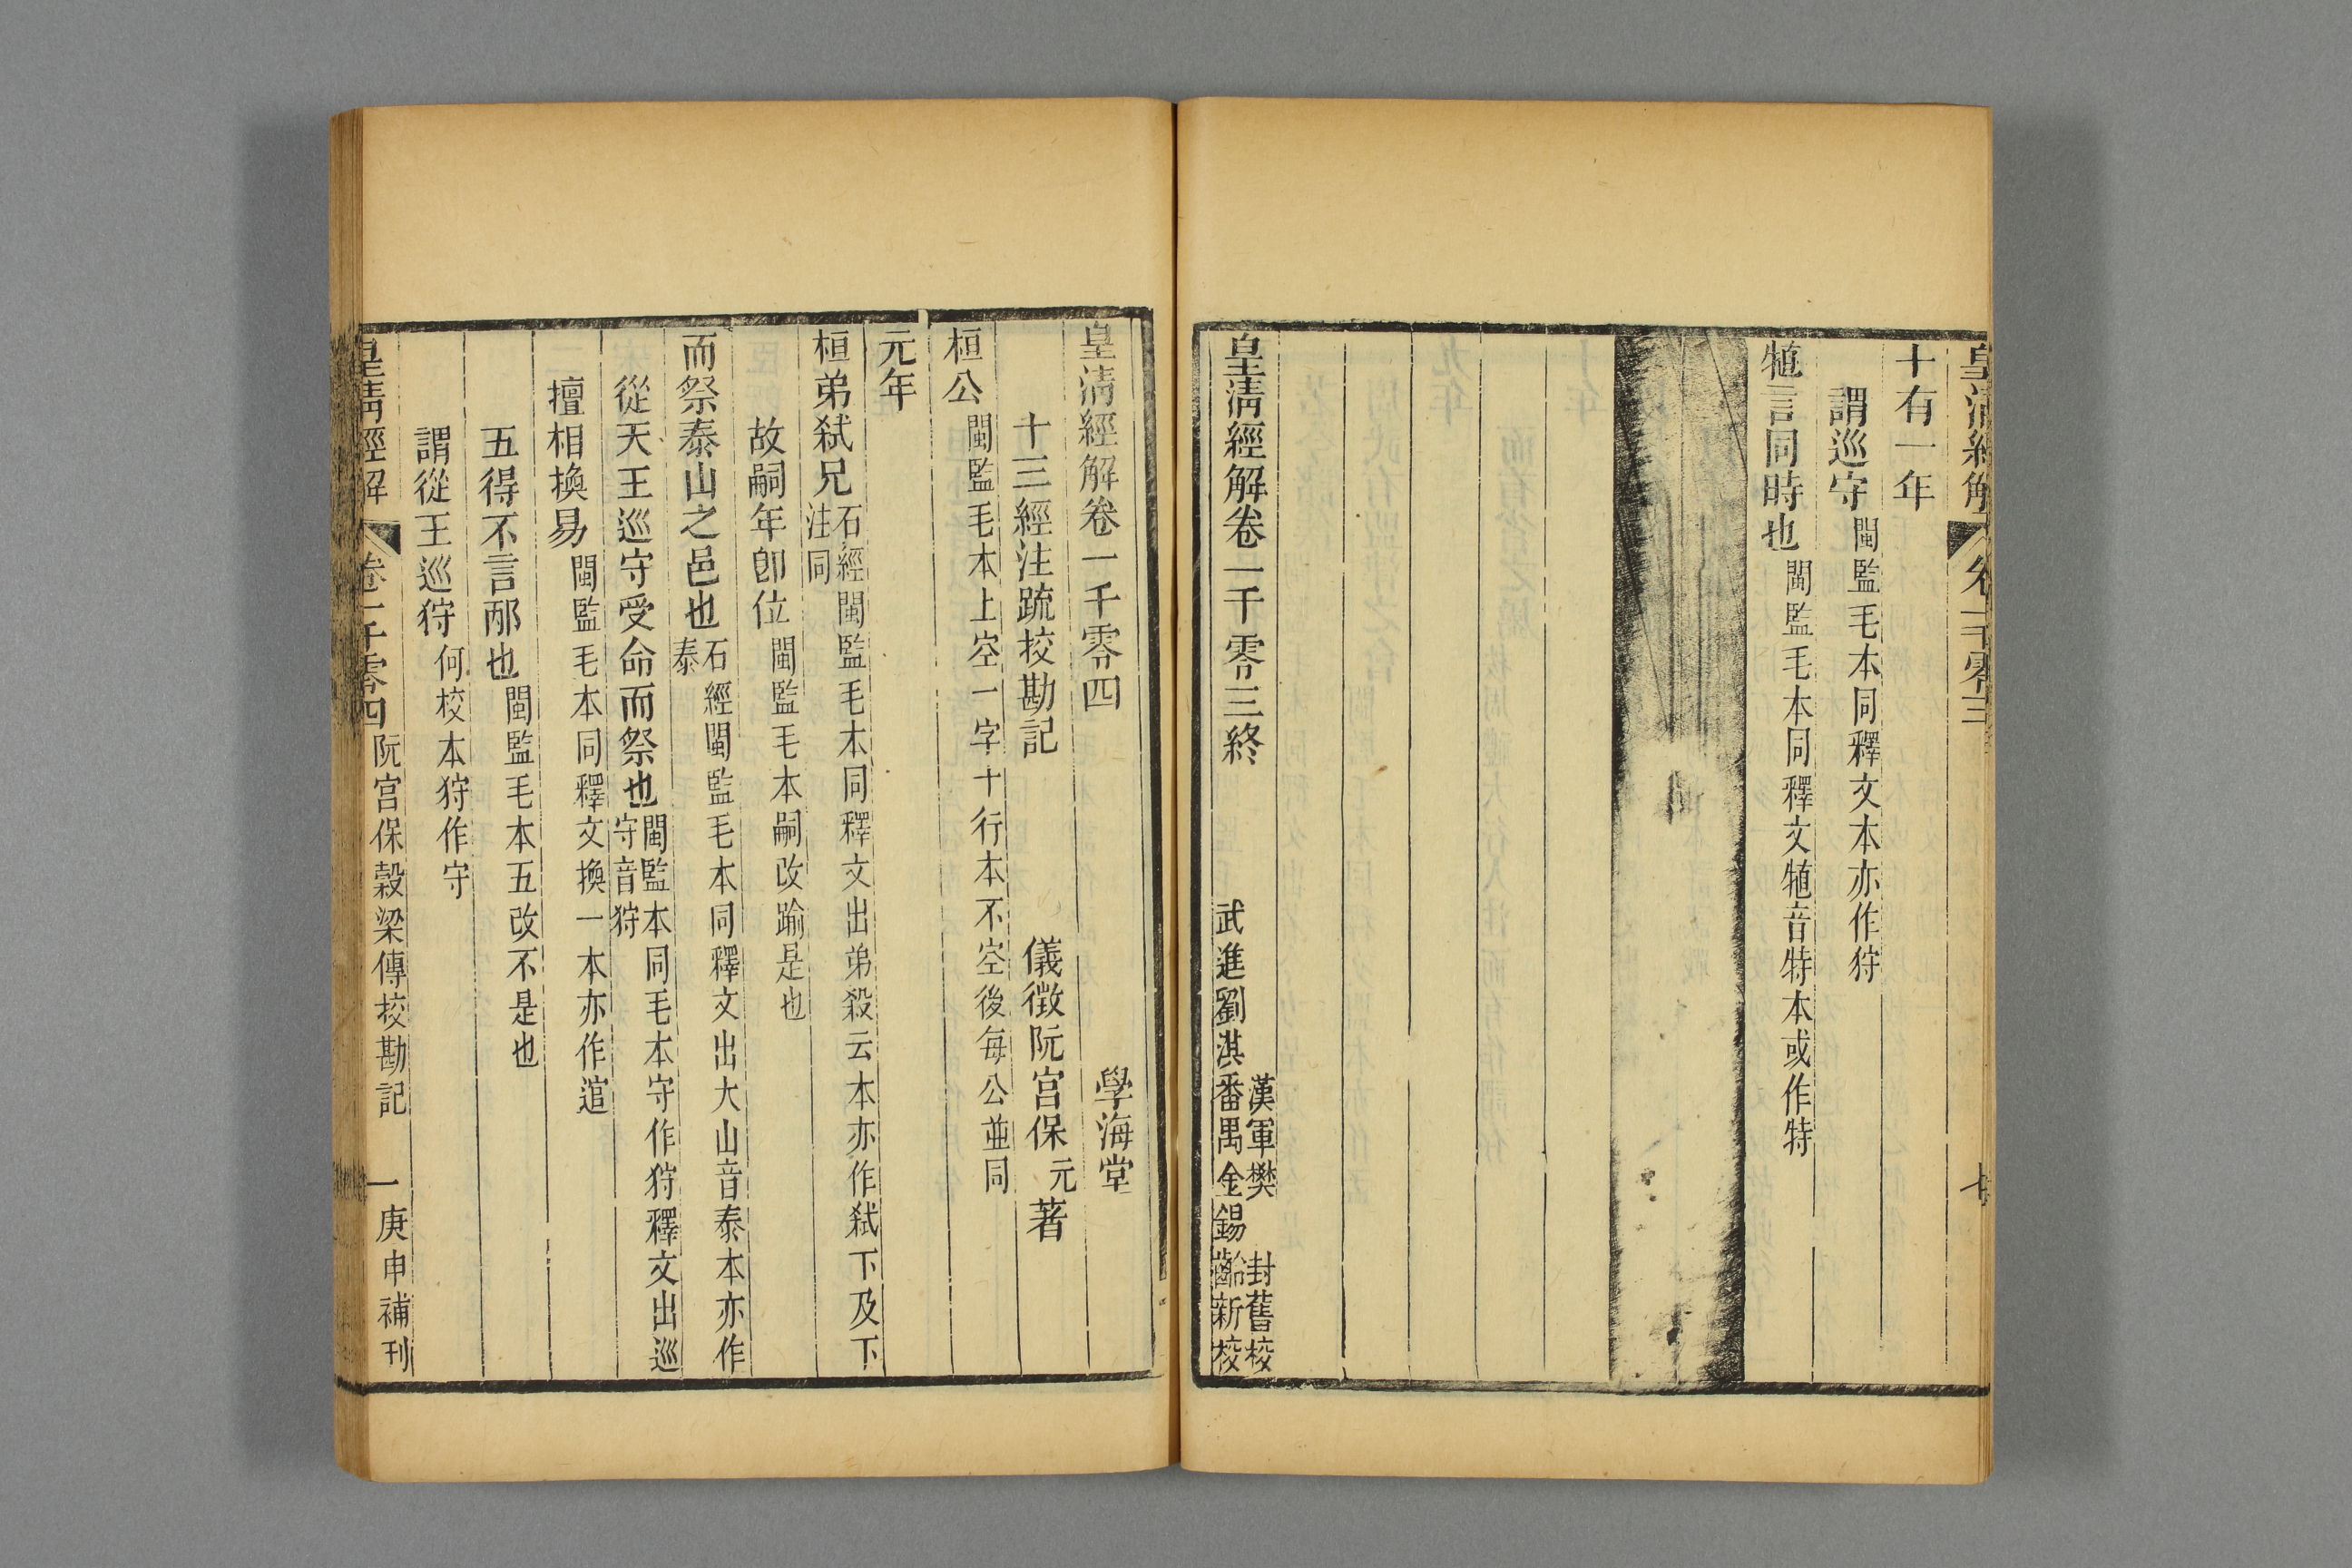 皇清經解 卷一千零三 七
十有一年
謂巡守閩監毛本同釋文本亦作狩
犆言同時也閩監毛本同釋文犆音特本或作特
皇清經解卷一千零三終
漢軍樊封舊校
武進劉淇番禺金錫齡新校
皇清經解卷一千零四
學海堂
十三經注疏校勘記
儀徵阮宮保元著
桓公閩監毛本上空一字十行本不空後每公並同
元年
桓弟弑兄石經閩監毛本同釋文出弟殺云本亦作弑下及下注同
故嗣年卽位閩監毛本嗣改踰是也
而祭泰山之邑也石經閩監毛本同釋文出大山音泰本亦作泰
從天王巡守受命而祭也閩監本同毛本守作狩釋文出巡守音狩
擅相換易閩監毛本同釋文換一本亦作逭
五得不言邴也閩監毛本五改不是也
謂從王巡狩何校本狩作守
皇清經解 卷一千零四 阮宮保穀梁傳校勘記 一 庚申補刊